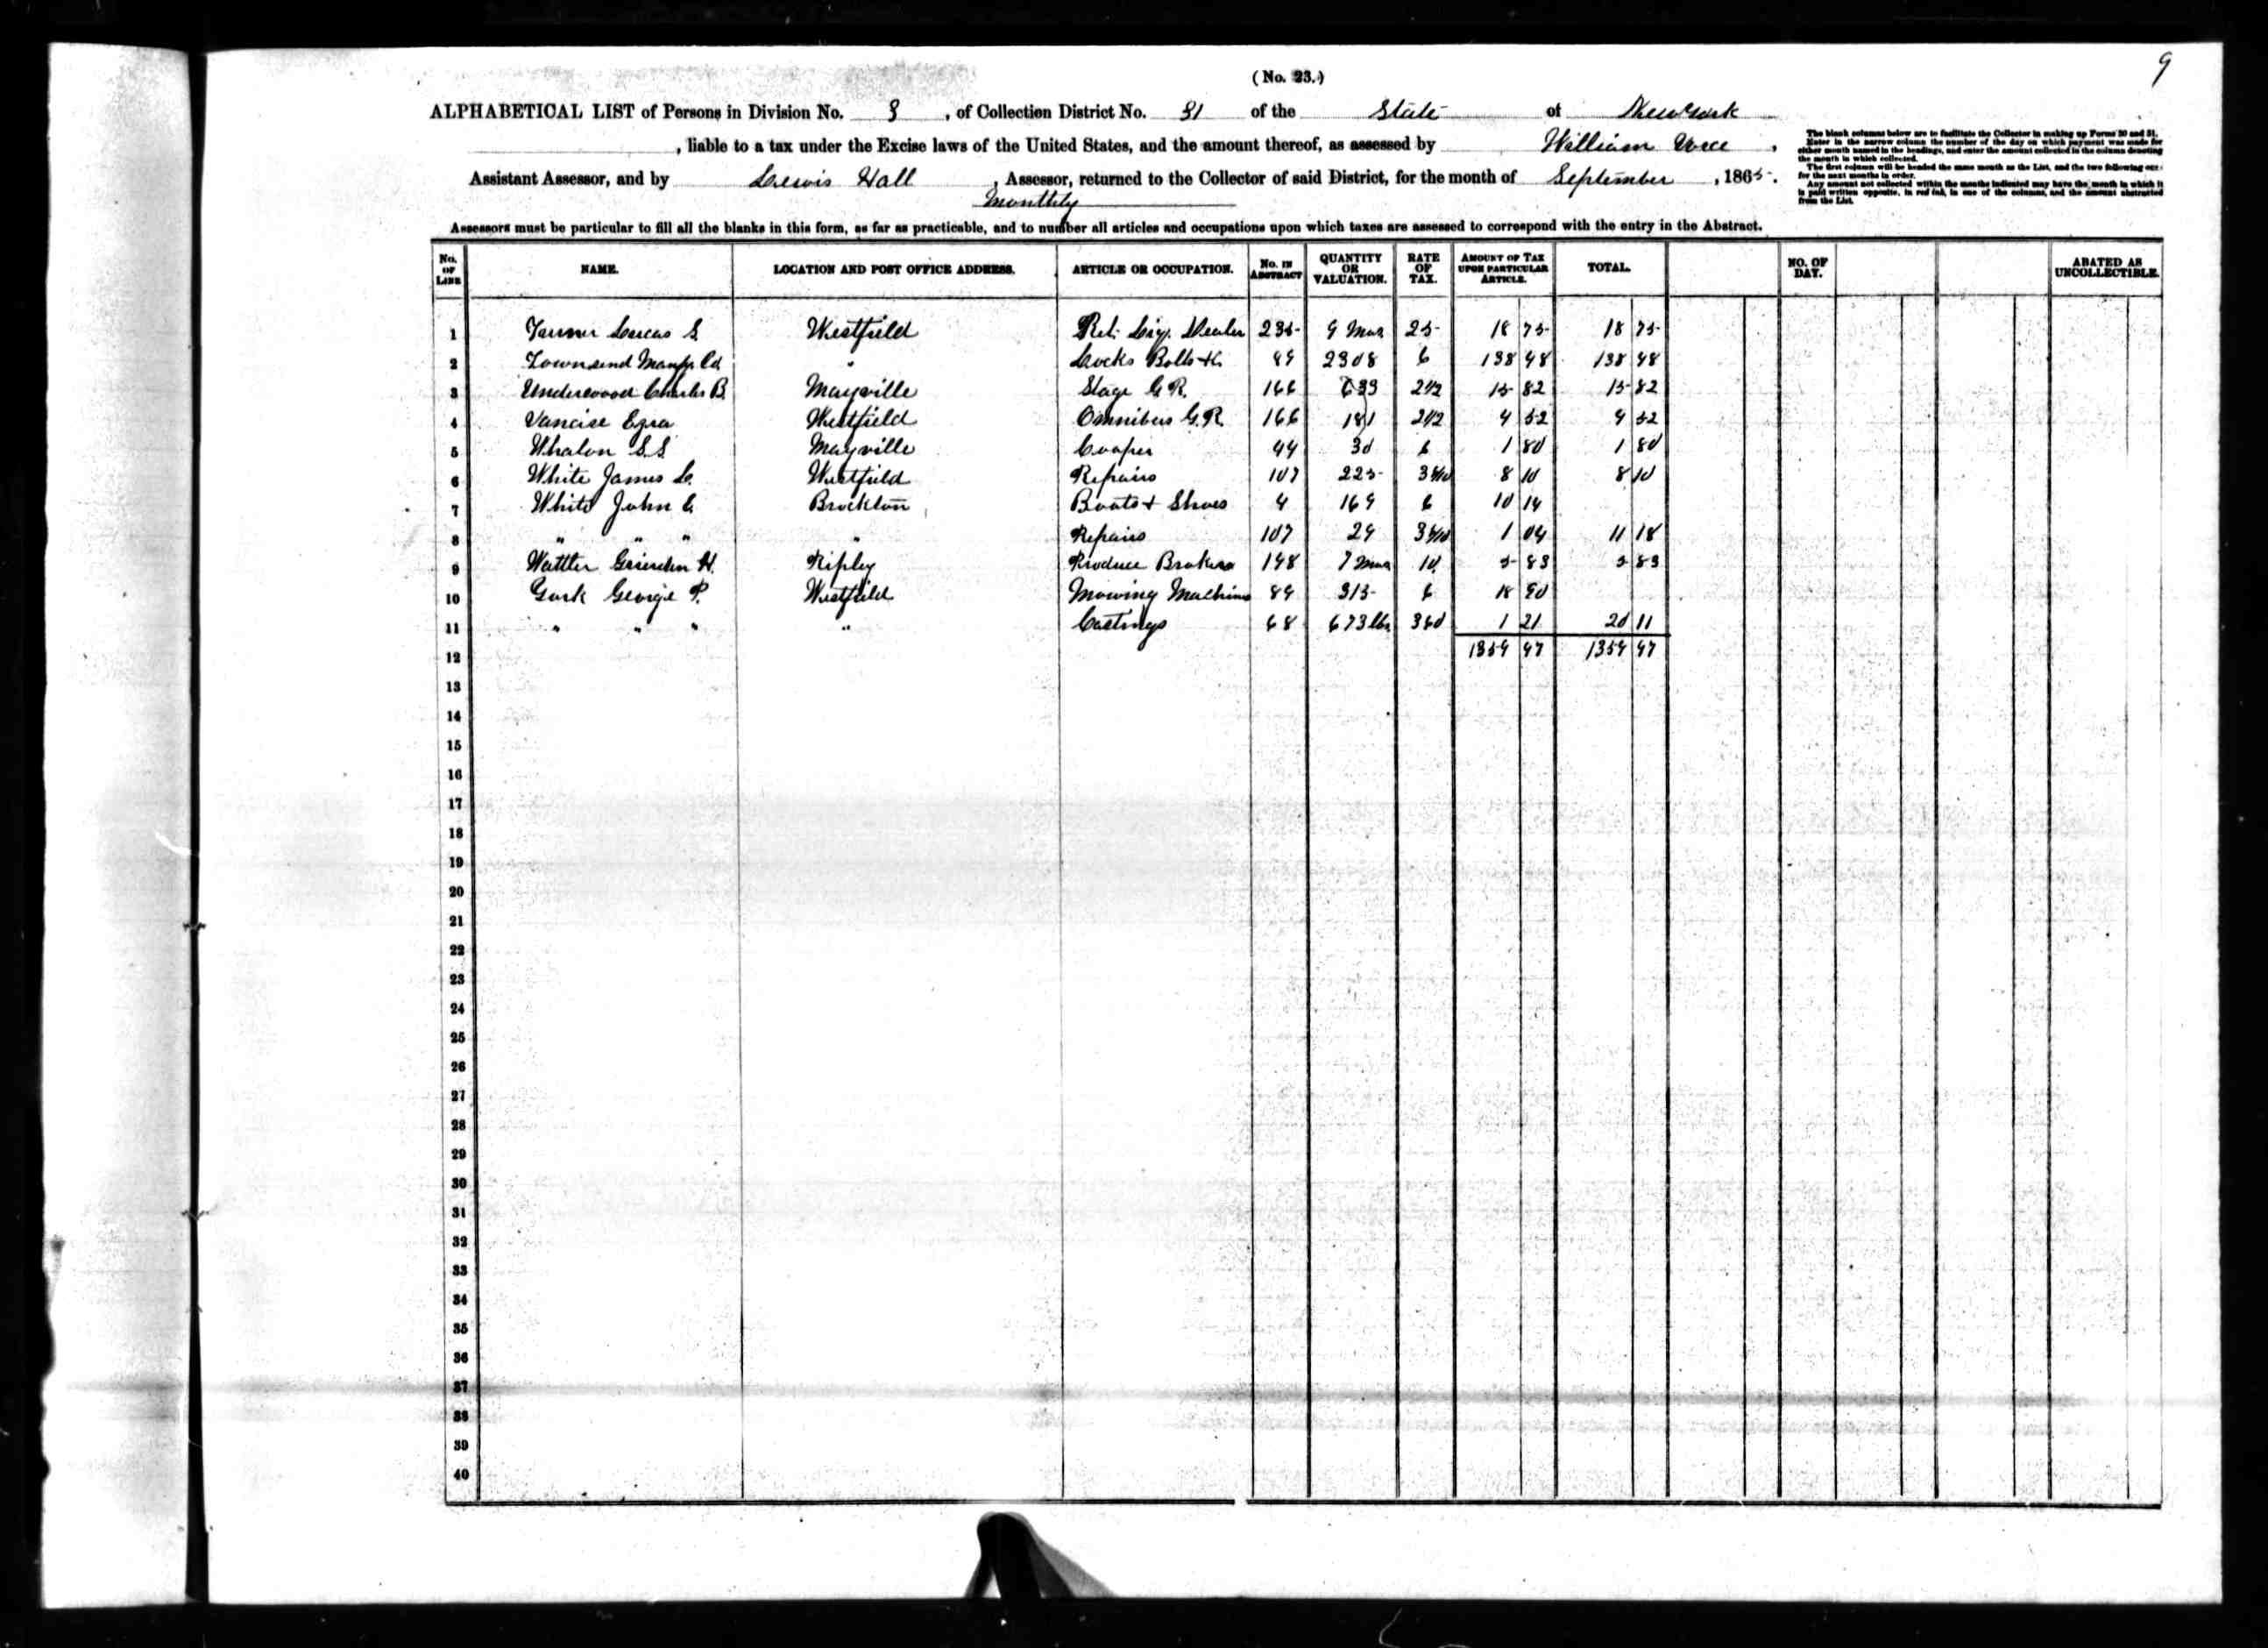 9
(No. 23.)
ALPHABETICAL LIST of Persons in Division No. 3, of Collection District No. 31 of the State of New York
, liable to a tax under the Excise laws of the United States, and the amount thereof, as assessed by William Vorce,
Assistant Assessor, and by Lewis Hall, Assessor, returned to the Collector of said District, for the month of September, 1865.
Monthly
The blank columns below are to facilitate the Collector in making up Forms 30 and 31.
Enter in the narrow column the number of the day on which payment was made for
either month named in the headings, and enter the amount collected in the column denoting
the month in which collected.
The first column will be headed the same month as the List, and the two following ones
for the next months in order.
Any amount not collected within the months indicated may have the month in which it
is paid written opposite, in red ink, in one of the columns, and the amount abstracted
from the List.
Assessors must be particular to fill all the blanks in this form, as far as practicable, and to number all articles and occupations upon which taxes are assessed to correspond with the entry in the Abstract.
No. OF LINE NAME. LOCATION AND POST OFFICE ADDRESS. ARTICLE OR OCCUPATION. No. IN ABSTRACT QUANTITY OR VALUATION. RATE OF TAX. AMOUNT OF TAX UPON PARTICULAR ARTICLE. TOTAL. NO. OF DAY. ABATED AS UNCOLLECTIBLE.
1 Lucas S. Westfield Ret. Liq. Dealer 235 9 Mos 25 18 75 18 75
2 Townsend Manfg. Co. " Locks Bolts &c. 89 2308 6 138 48 138 48
3 Underwood Charles B. Mayville Stage G.R. 166 633 2 1/2 15 82 15 82
4 Vancise Ezra Westfield Omnibus G.R. 166 181 2 1/2 4 52 4 52
5 Whalon S.S. Mayville Cooper 44 30 6 1 80 1 80
6 White James L. Westfield Repairs 107 225 3 6/10 8 10 8 10
7 White John C. Brockton Boots & Shoes 4 169 6 10 14
8 " " " " Repairs 107 29 3 6/10 1 04 11 18
9 H. Ripley Produce Broker 198 7 Mos 10 5 83 5 83
10 York George P. Westfield Mowing Machine 89 315 6 18 90
11 " " " " Castings 68 673 lbs 360 1 21 20 11
12 1354 47 1354 47
13
14
15
16
17
18
19
20
21
22
23
24
25
26
27
28
29
30
31
32
33
34
35
36
37
38
39
40